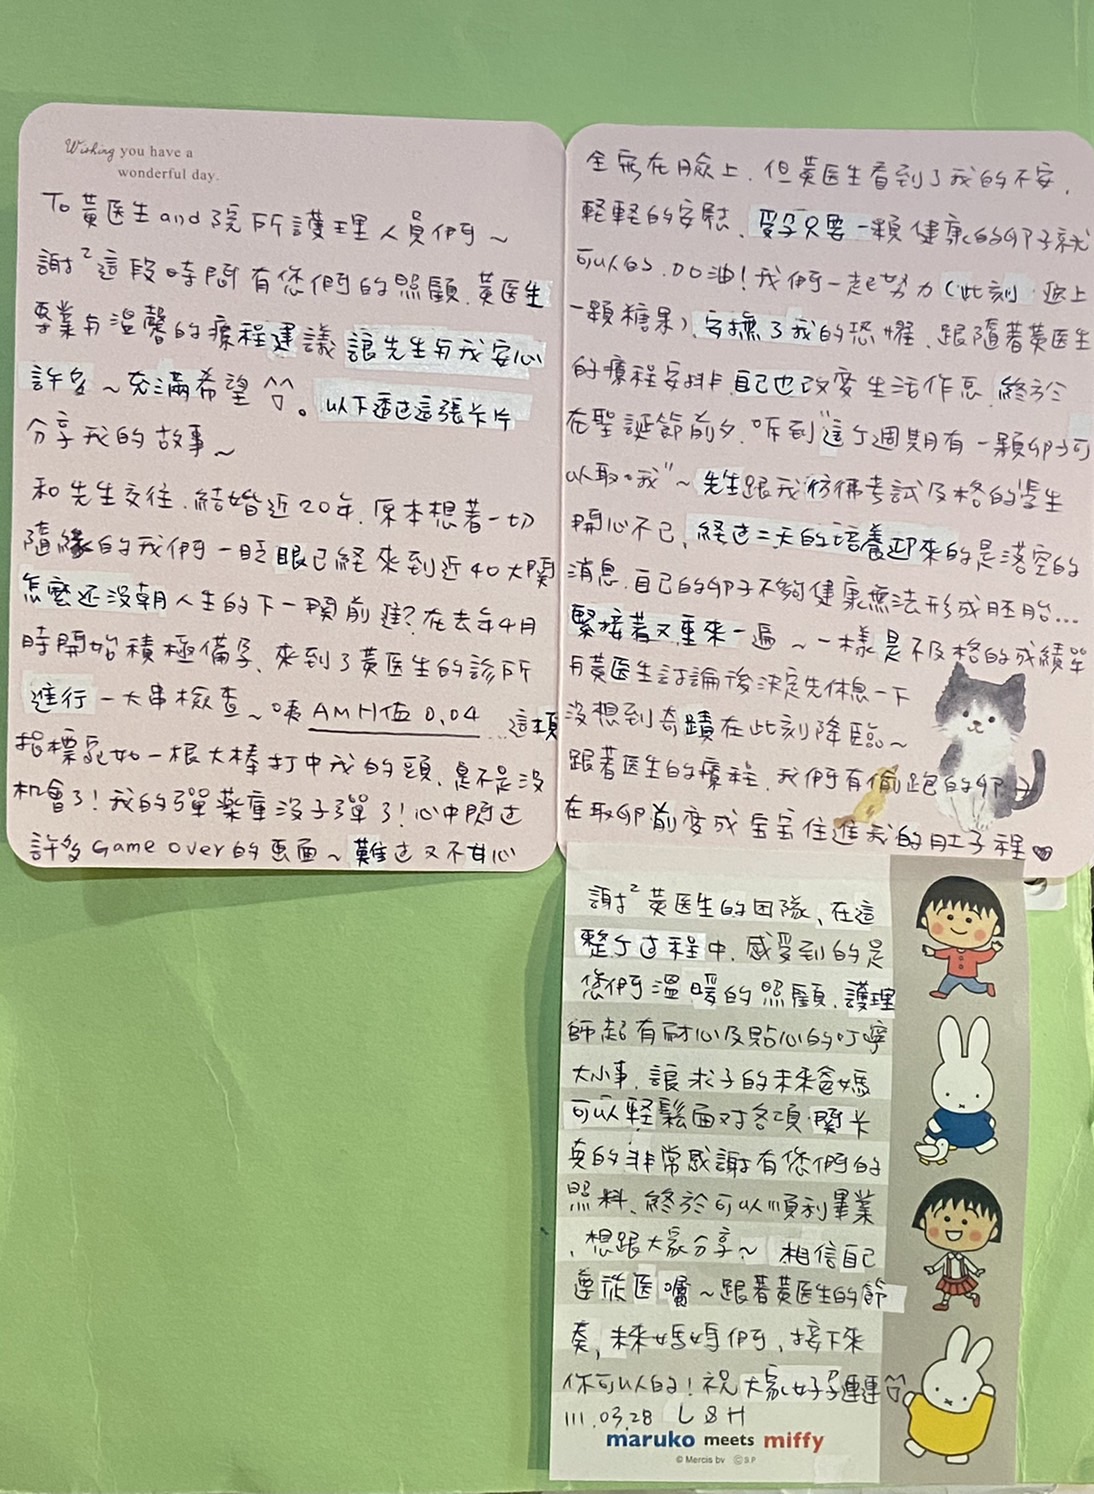 Wishing you have a
wonderful day.
To 黃医生 and 院所護理人員們～
謝²這段時間有您們的照顧、黃医生
專業与溫馨的療程建議讓先生与我安心
許多～充滿希望^^。以下透过這張卡片
分享我的故事～
和先生交往、結婚近20年、原本想著一切
隨緣的我們一眨眼已経來到近40大關
怎麼还沒朝人生的下一關前進?在去年4月
時開始積極備孕、來到了黃医生的診所
進行一大串檢查～咦 AMH值 0.04 ...這項
指標宛如一根大棒打中我的頭、是不是沒
机會了!我的彈藥庫沒子彈了!心中閃过
許多 Game over的畫面～難过又不甘心
全寫在臉上、但黃医生看到了我的不安、
輕輕的安慰、受孕只要一顆健康的卵子就
可以的、加油!我們一起努力(此刻遞上
一顆糖果)、安撫了我的恐懼、跟隨著黃医生
的療程安排自己也改変生活作息、終於
在聖誕節前夕、听到"這个週期有一顆卵子可
以取哦"～先生跟我彷彿考試及格的學生
開心不已、経过三天的培養迎來的是落空的
消息、自己的卵子不夠健康無法形成胚胎...
緊接著又重來一遍～一樣是不及格的成績單
与黃医生討論後決定先休息一下
沒想到奇蹟在此刻降臨～
跟著医生的療程、我們有偷跑的卵子
在取卵前変成宝宝住進我的肚子裡♥
謝²黃医生的团隊、在這
整个过程中、感受到的是
您們溫暖的照顧、護理
師超有耐心及貼心的叮嚀
大小事、讓求子的未來爸媽
可以輕鬆面对各項關卡
真的非常感謝有您們的
照料、終於可以順利畢業
、想跟大家分享～ 相信自己
遵從医囑～跟著黃医生的節
奏, 未來媽媽們、接下來
你可以的!祝大家好孕連連^^
111.03.28 LSH
maruko meets miffy
© Mercis bv © S.P